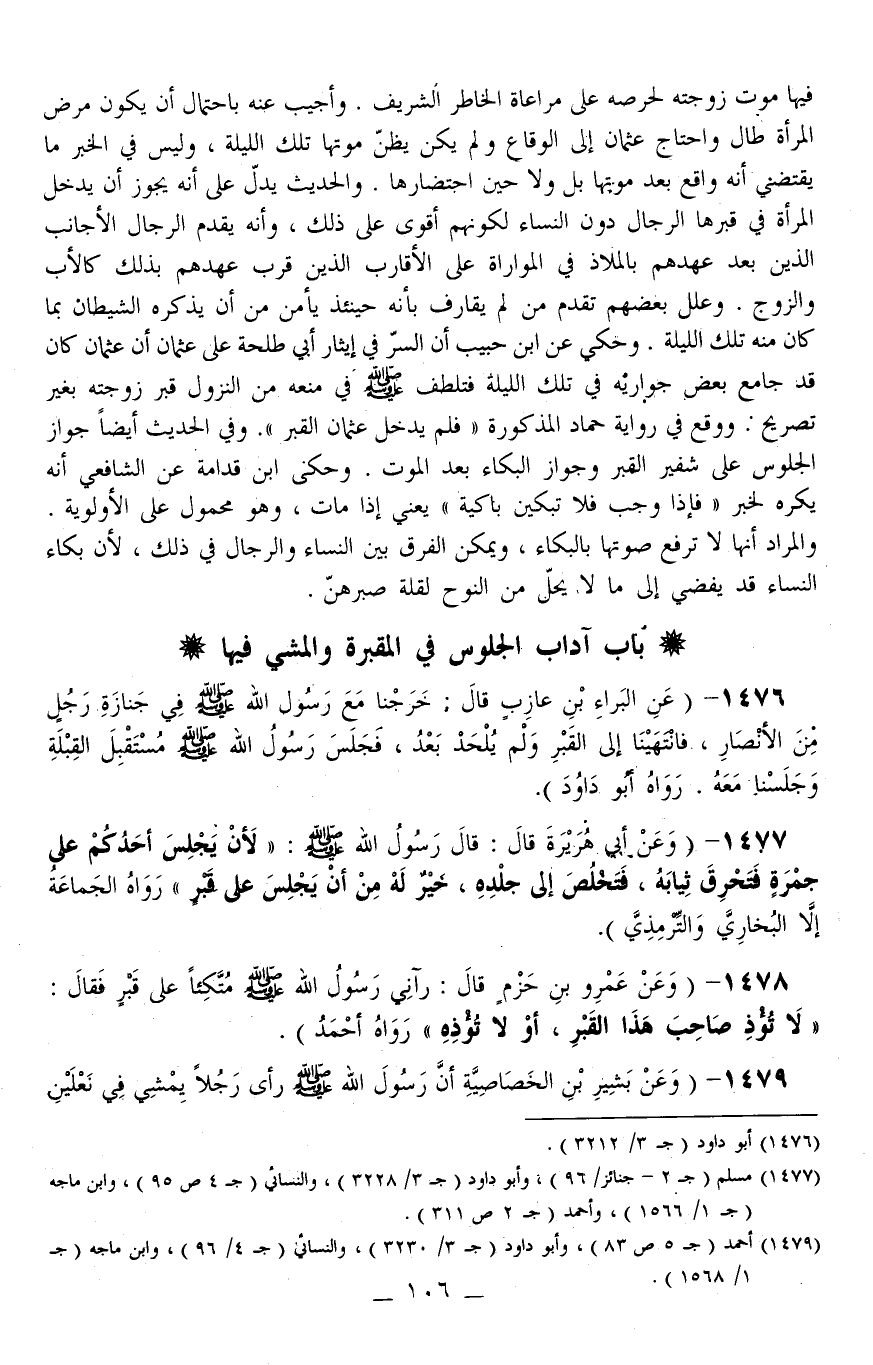 فيها موت زوجته لحرصه على مراعاة الخاطر الشريف . وأجيب عنه باحتمال أن يكون مرض
المرأة طال واحتاج عثمان إلى الوقاع ولم يكن يظنّ موتها تلك الليلة ، وليس في الخبر ما
يقتضي أنه واقع بعد موتها بل ولا حين احتضارها . والحديث يدلّ على أنه يجوز أن يدخل
المرأة في قبرها الرجال دون النساء لكونهم أقوى على ذلك ، وأنه يقدم الرجال الأجانب
الذين بعد عهدهم بالملاذ في المواراة على الأقارب الذين قرب عهدهم بذلك كالأب
والزوج . وعلل بعضهم تقدم من لم يقارف بأنه حينئذ يأمن من أن يذكره الشيطان بما
كان منه تلك الليلة . وحكي عن ابن حبيب أن السرّ في إيثار أبي طلحة على عثمان أن عثمان كان
قد جامع بعض جواريه في تلك الليلة فتلطف ﷺ في منعه من النزول قبر زوجته بغير
تصريح . ووقع في رواية حماد المذكورة « فلم يدخل عثمان القبر ». وفي الحديث أيضاً جواز
الجلوس على شفير القبر وجواز البكاء بعد الموت . وحكى ابن قدامة عن الشافعي أنه
يكره لخبر « فإذا وجب فلا تبكين باكية » يعني إذا مات ، وهو محمول على الأولوية .
والمراد أنها لا ترفع صوتها بالبكاء ، ويمكن الفرق بين النساء والرجال في ذلك ، لأن بكاء
النساء قد يفضي إلى ما لا يحلّ من النوح لقلة صبرهنّ .
❋ باب آداب الجلوس في المقبرة والمشي فيها ❋
١٤٧٦- ( عَنِ البَراءِ بْنِ عازِبٍ قالَ : خَرَجْنا مَعَ رَسُول الله ﷺ فِي جَنازَةِ رَجُلٍ
مِّنَ الأنْصَارِ ، فانْتَهَيْنَا إلى القَبْرِ وَلَم يُلْحَدْ بَعْدُ ، فَجَلَسَ رَسُولُ الله ﷺ مُسْتَقْبِلَ القِبْلَةِ
وَجَلَسْنا مَعَهُ . رَوَاهُ أبُو دَاوُدَ ).
١٤٧٧- ( وَعَنْ أبي هُرَيْرَةَ قالَ : قالَ رَسُولُ الله ﷺ : « لَأنْ يَجْلِسَ أحَدُكُمْ على
جمْرَةٍ فَتَحْرِقَ ثِيابَهُ ، فَتَخْلُصَ إلى جلْدِهِ ، خَيْرٌ لَهُ مِنْ أنْ يَجْلِسَ على قَبْرٍ » رَوَاهُ الجَماعَةُ
إلَّا البُخارِيَّ وَالتِّرْمِذِيَّ ).
١٤٧٨- ( وَعَنْ عَمْرِو بنِ حَزْمٍ قالَ : رآنِي رَسُولُ الله ﷺ مُتَّكِئاً على قَبْرٍ فَقالَ :
« لَا تُؤْذِ صَاحِبَ هَذَا القَبْرِ ، أوْ لا تُؤْذِهِ » رَوَاهُ أحْمَدُ ) .
١٤٧٩- ( وَعَنْ بَشِيرِ بْنِ الخَصَاصِيَّةِ أنَّ رَسُولَ الله ﷺ رأى رَجُلاً يمْشِي فِي نَعْلَيْنِ
(١٤٧٦) أبو داود ( جـ ٣/ ٣٢١٢ ) .
(١٤٧٧) مسلم ( جـ ٢ - جنائز/ ٩٦ ) ، وأبو داود ( جـ ٣/ ٣٢٢٨ ) ، والنسائي ( جـ ٤ ص ٩٥ ) ، وابن ماجه
( جـ ١/ ١٥٦٦ ) ، وأحمد ( جـ ٢ ص ٣١١ ) .
(١٤٧٩) أحمد ( جـ ٥ ص ٨٣ ) ، وأبو داود ( جـ ٣/ ٣٢٣٠ ) ، والنسائي ( جـ ٤/ ٩٦ ) ، وابن ماجه ( جـ
١/ ١٥٦٨ ) .
— ١٠٦ —